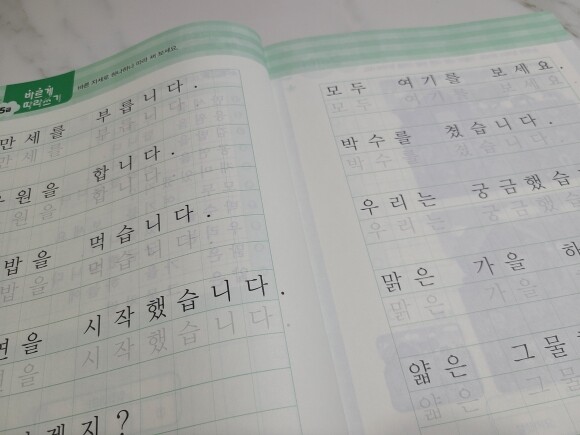 바르게
따라쓰기
바른 자세로 하나하나 따라 써 보세요.
만세를 부릅니다.
만세를 부릅니다.
원을 합니다.
원을 합니다.
밥을 먹습니다.
밥을 먹습니다.
을 시작했습니다.
을 시작했습니다
게지?
모두 여기를 보세요.
모두 여기를 보세요
박수를 쳤습니다.
박수를 쳤습니다.
우리는 궁금했습
우리는 궁금했
맑은 가을 하
맑은 가을
얇은 그물
얇은 그물